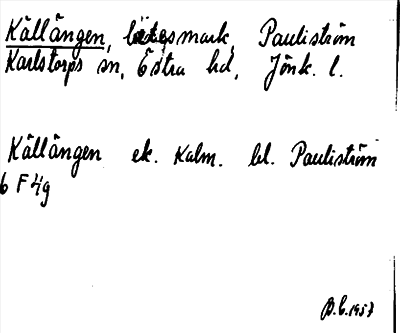 Källängen, betesmark, Pauliström
Karlstorps sn, Östra hd, Jönk. l.
Källängen ek. Kalm. bl. Pauliström
6 F 4g
B.C. 1957